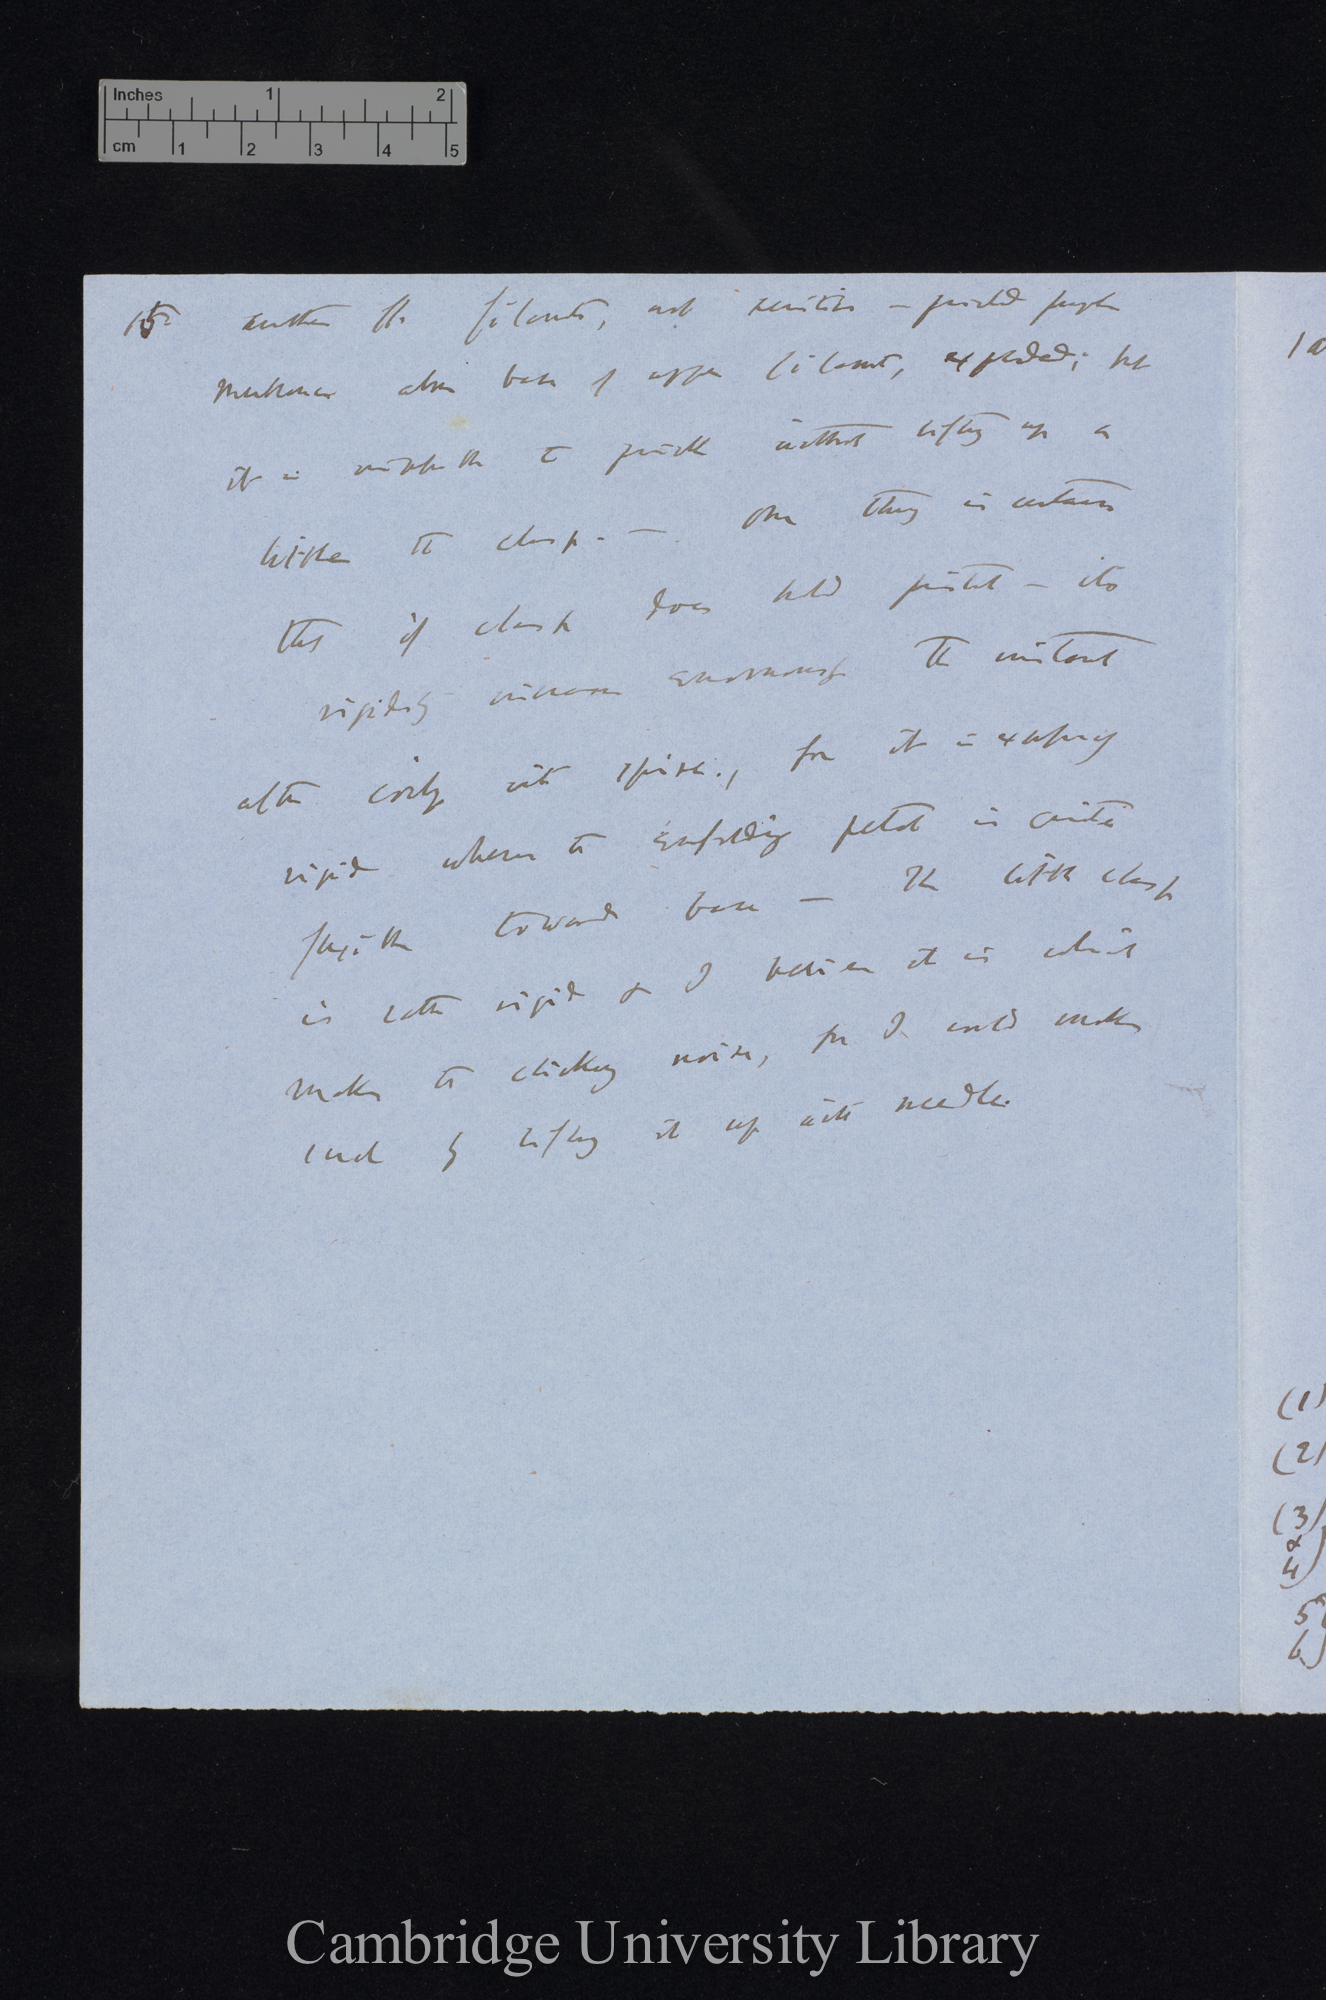 Inches 1 2
cm 1 2 3 4 5
15 another fl. filaments, not sensitive — pricked
membrane above base of upper filament, exploded; but
it is to prick without lifting up a
little the clasp. — One thing is certain
that if clasp does hold pistil — its
rigidity increases enormously the instant
after spiral, for it is
rigid whereas the pistil is quite
flexible towards base — The little clasp
is rather rigid & I believe it is which
makes the clicking noise, for I could make
such by lifting it up with needle.
1a
(1)
(2)
(3)
&
4)
5
6
Cambridge University Library